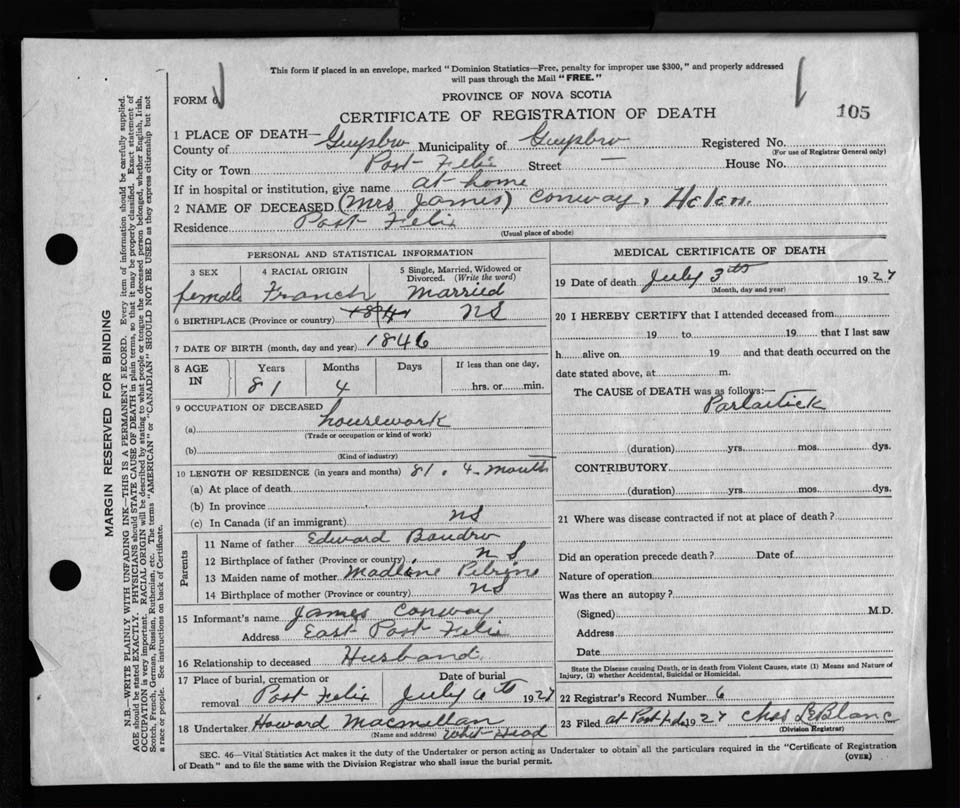 This form if placed in an envelope, marked "Dominion Statistics—Free, penalty for improper use $300," and properly addressed
will pass through the Mail "FREE."
FORM 6
PROVINCE OF NOVA SCOTIA
CERTIFICATE OF REGISTRATION OF DEATH
105
1 PLACE OF DEATH—
County of Guysbro Municipality of Guysbro Registered No.
(For use of Registrar General only)
City or Town Port Felix Street — House No.
If in hospital or institution, give name at home
2 NAME OF DECEASED (Mrs James) Conway, Helen.
Residence Port Felix
(Usual place of abode)
PERSONAL AND STATISTICAL INFORMATION
3 SEX 4 RACIAL ORIGIN 5 Single, Married, Widowed or Divorced. (Write the word)
female Franch Married
6 BIRTHPLACE (Province or country) NS
7 DATE OF BIRTH (month, day and year) 1846
8 AGE IN Years Months Days If less than one day,
81 4 hrs. or min.
9 OCCUPATION OF DECEASED
(a) housework
(Trade or occupation or kind of work)
(b)
(Kind of industry)
10 LENGTH OF RESIDENCE (in years and months) 81. 4. month
(a) At place of death
(b) In province
(c) In Canada (if an immigrant) NS
Parents
11 Name of father Edward Boudro
12 Birthplace of father (Province or country) NS
13 Maiden name of mother Madline Pelrine
14 Birthplace of mother (Province or country) NS
15 Informant's name James Conway
Address East Port Felix
16 Relationship to deceased Husband
17 Place of burial, cremation or removal Date of burial
Port Felix July 6th 1927
18 Undertaker Howard Macmillan
(Name and address) Whit-Head
MEDICAL CERTIFICATE OF DEATH
19 Date of death July 3th 1927
(Month, day and year)
20 I HEREBY CERTIFY that I attended deceased from
19 to 19 that I last saw
h alive on 19 and that death occurred on the
date stated above, at m.
The CAUSE of DEATH was as follows:—
(duration) yrs. mos. dys.
CONTRIBUTORY
(duration) yrs. mos. dys.
21 Where was disease contracted if not at place of death?
Did an operation precede death? Date of
Nature of operation
Was there an autopsy?
(Signed) M.D.
Address
Date
State the Disease causing Death, or in death from Violent Causes, state (1) Means and Nature of
Injury, (2) whether Accidental, Suicidal or Homicidal.
22 Registrar's Record Number 6
23 Filed at 1927 Chas LeBlanc
(Division Registrar)
SEC. 46—Vital Statistics Act makes it the duty of the Undertaker or person acting as Undertaker to obtain all the particulars required in the "Certificate of Registration
of Death" and to file the same with the Division Registrar who shall issue the burial permit.
(OVER)
MARGIN RESERVED FOR BINDING
N.B.—WRITE PLAINLY WITH UNFADING INK—THIS IS A PERMANENT RECORD. Every item of information should be carefully supplied.
AGE should be stated EXACTLY. PHYSICIANS should STATE CAUSE OF DEATH in plain terms, so that it may be properly classified. Exact statement of
OCCUPATION is very important. RACIAL ORIGIN will be described by stating to what people or tongue the deceased person belonged, whether English, Irish,
Scotch, French, German, Russian, Ruthenian, etc. The terms "AMERICAN" or "CANADIAN" SHOULD NOT BE USED as they express citizenship but not
a race or people. See instructions on back of Certificate.